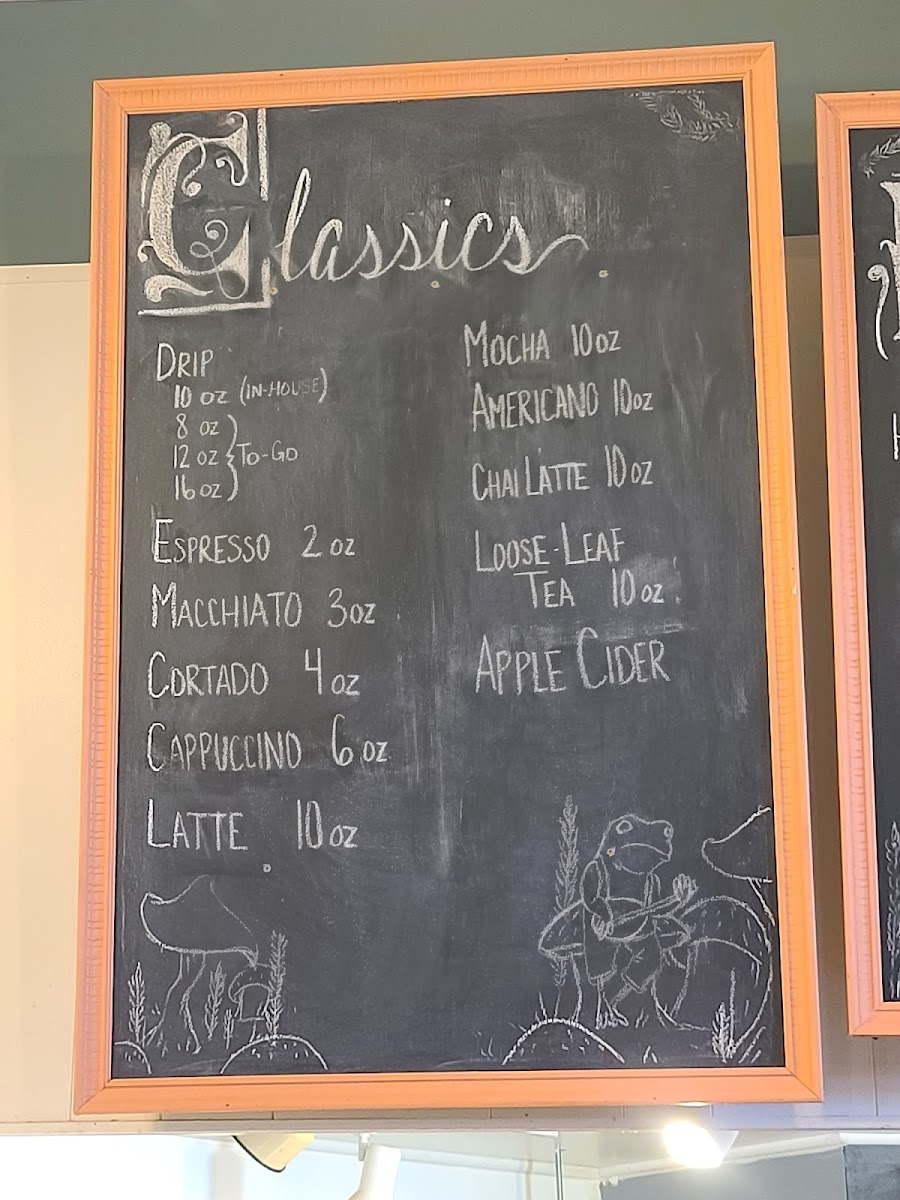 Classics
DRIP
10 OZ (IN-HOUSE)
8 OZ
12 OZ } TO-GO
16 OZ
ESPRESSO 2 OZ
MACCHIATO 3 OZ
CORTADO 4 OZ
CAPPUCCINO 6 OZ
LATTE 10 OZ
MOCHA 10 OZ
AMERICANO 10 OZ
CHAI LATTE 10 OZ
LOOSE-LEAF
TEA 10 OZ
APPLE CIDER